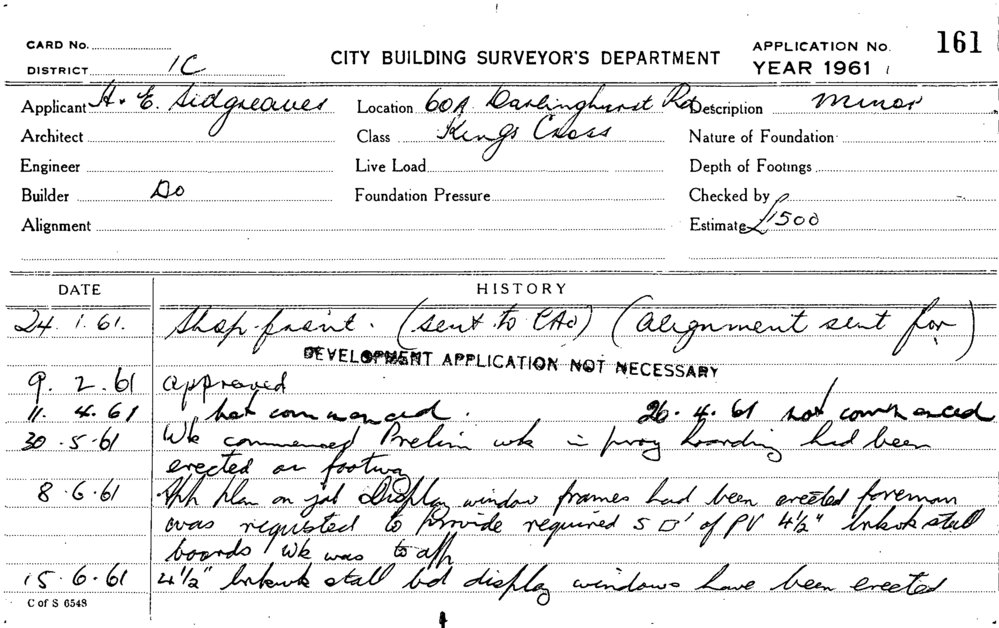 CARD No. CITY BUILDING SURVEYOR'S DEPARTMENT APPLICATION No. 161
DISTRICT 1C YEAR 1961
Applicant H. E. Sidgreaves Location 60A Darlinghurst Rd Description Minor
Architect Class Kings Cross Nature of Foundation
Engineer Live Load Depth of Footings
Builder Do Foundation Pressure Checked by
Alignment Estimate £1500
DATE HISTORY
24. 1. 61. Shop-front. (sent to CAO) (alignment sent for)
DEVELOPMENT APPLICATION NOT NECESSARY
9. 2. 61 approved
11. 4. 61 not commenced. 26. 4. 61 not commenced
30. 5. 61 Wk commenced Prelim wk in prog hoarding had been
erected on footway
8. 6. 61 App plan on job Display window frames had been erected foreman
was requested to provide required 5 □' of PV 4½" brkwk stall
boards wk was to app
15. 6. 61 4½" brkwk stall bd display windows have been erected
C of S 6548